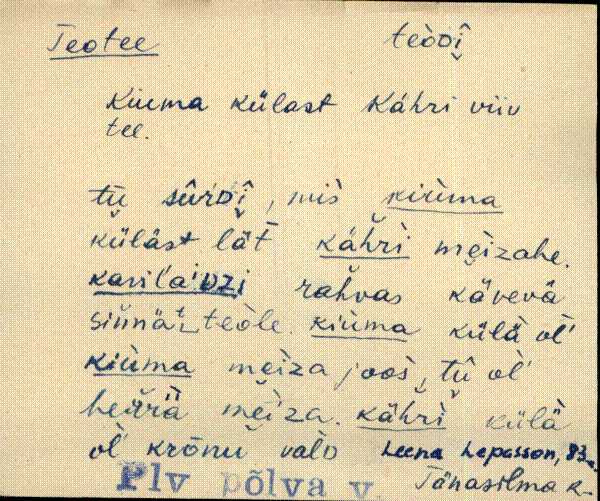 Teotee teòDî
Kiuma külast Kähri viiv
tee.
tū sūrDî, mis kiùma
küläst lät kähri mèizahe.
karilaiDZi rahvas kävevä
sinnä teòle. kiùma külà ol'
kiùma mèiza joos, tū ol'
herrä mèiza. kähri külà
ol' krōnu valD Leena Lepasson, 83 a.
Plv põlva v. Tänasilma k.